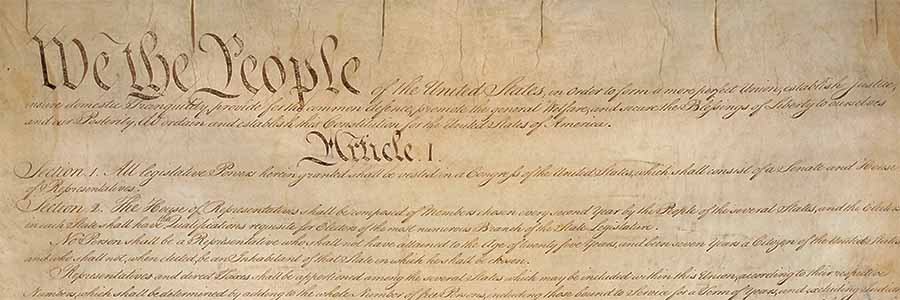 We the People of the United States, in order to form a more perfect Union, establish Justice,
insure domestic Tranquility, provide for the common defence, promote the general Welfare, and secure the Blessings of Liberty to ourselves
and our Posterity, do ordain and establish this Constitution for the United States of America.
Article. I.
Section 1. All legislative Powers herein granted shall be vested in a Congress of the United States, which shall consist of a Senate and House
of Representatives.
Section 2. The House of Representatives shall be composed of Members chosen every second Year by the People of the several States, and the Electors
in each State shall have the Qualifications requisite for Electors of the most numerous Branch of the State Legislature.
No Person shall be a Representative who shall not have attained to the Age of twenty five Years, and been seven Years a Citizen of the United States,
and who shall not, when elected, be an Inhabitant of that State in which he shall be chosen.
Representatives and direct Taxes shall be apportioned among the several States which may be included within this Union, according to their respective
Numbers, which shall be determined by adding to the whole Number of free Persons, including those bound to Service for a Term of Years, and excluding Indians